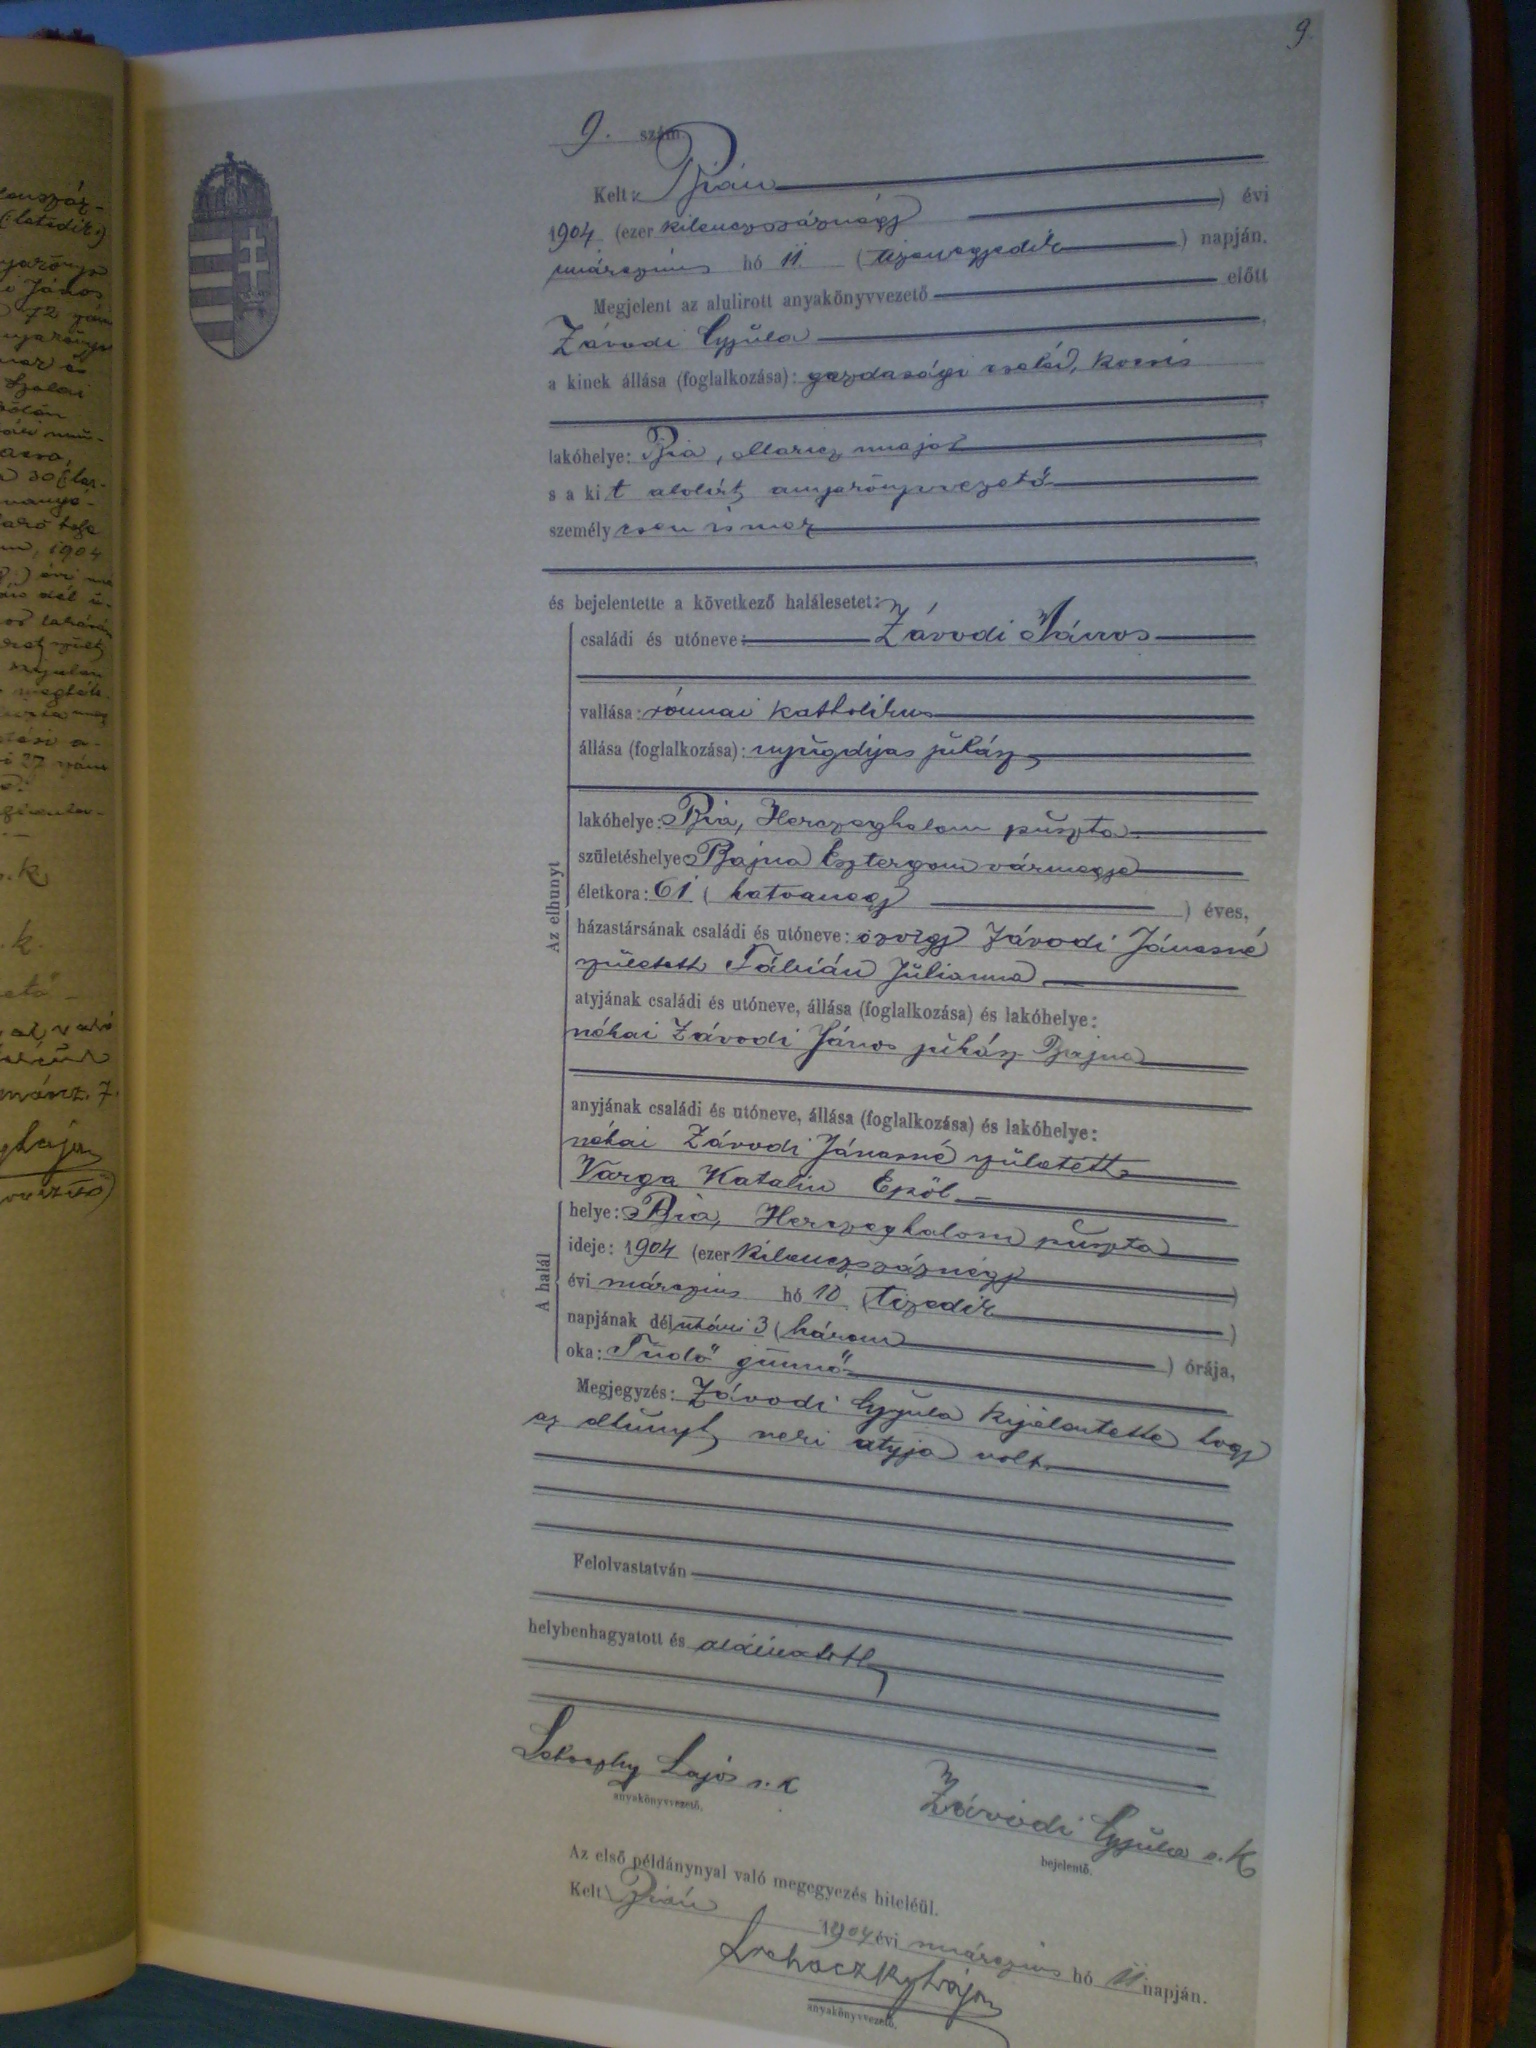 9.
9. szám.
Kelt: Bián
1904 (ezer kilenczszáznégy) évi
márczius hó 11. (tizenegyedik) napján.
Megjelent az alulirott anyakönyvvezető előtt
Závodi Gyula
a kinek állása (foglalkozása): gazdasági cseléd, kocsis
lakóhelye: Bia, Maricz major
s a kit alolirt anyakönyvvezető
személyesen ismer
és bejelentette a következő halálesetet:
Az elhunyt
családi és utóneve: Závodi János
vallása: római katholikus
állása (foglalkozása): nyugdijas juhász
lakóhelye: Bia, Herczeghalom puszta
születéshelye: Bajna Esztergom vármegye
életkora: 61 (hatvanegy) éves,
házastársának családi és utóneve: özvegy Závodi Jánosné
született Fábián Julianna
atyjának családi és utóneve, állása (foglalkozása) és lakóhelye:
néhai Závodi János juhász Bajna
anyjának családi és utóneve, állása (foglalkozása) és lakóhelye:
néhai Závodi Jánosné született
Varga Katalin Epöl
A halál
helye: Bia, Herczeghalom puszta
ideje: 1904 (ezer kilenczszáznégy)
évi márczius hó 10. (tizedik)
napjának délutáni 3 (három) órája,
oka: Tüdő gümő
Megjegyzés: Závodi Gyula kijelentette hogy
az elhunyt neki atyja volt.
Felolvastatván
helybenhagyatott és aláiratott
Lajos s. k
anyakönyvvezető.
Závodi Gyula s. k
bejelentő.
Az első példánynyal való megegyezés hiteléül.
Kelt Bián 1904 évi márczius hó 11 napján.
anyakönyvvezető.